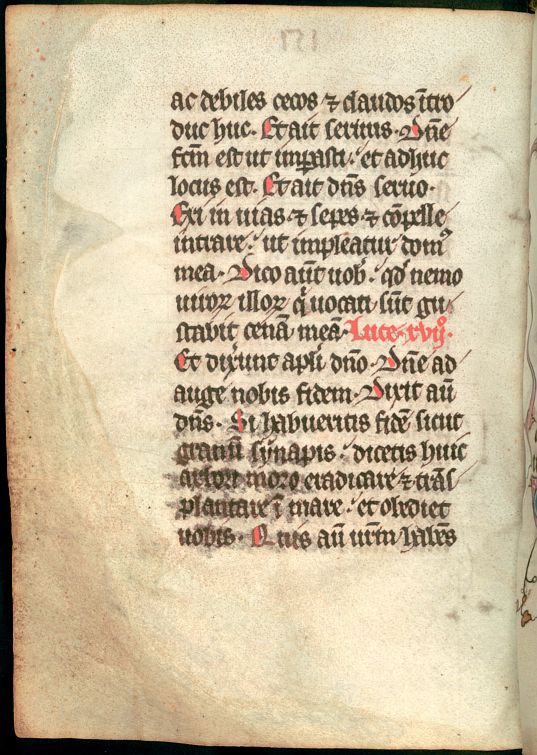 121
ac debiles cecos ⁊ claudos ītro
duc huc. Et ait seruus. Dn̄e
fcm̄ est ut inꝑasti. et adhuc
locus est. Et ait dn̄s seruo.
Exi in uias ⁊ sepes ⁊ cōpelle
intrare. ut impleatur domꝰ
mea. Dico aūt uob̄. qd̓ nemo
uiroꝝ illoꝝ q̓ uocati sūt gu
stabit cenā meā. Luce. xvijº.
Et dixunt apl̓i dn̄o. Dn̄e ad
auge nobis fidem. Dixit aū
dn̄s. Si habueritis fidē sicut
granū synapis. dicetis huic
arbori moro eradicare ⁊ trās
plantare ī mare. et obediet
uobis. Quis aū ur̄m habēs